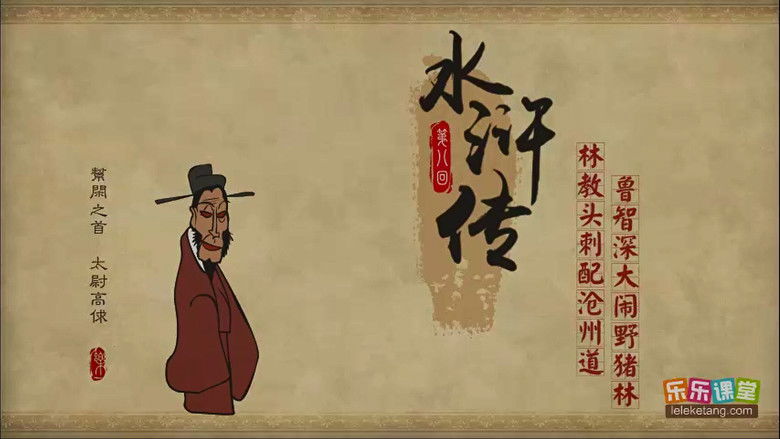 水浒传
第八回
鲁智深大闹野猪林
林教头刺配沧州道
幫閑之首 太尉高俅
乐乐课堂
leleketang.com